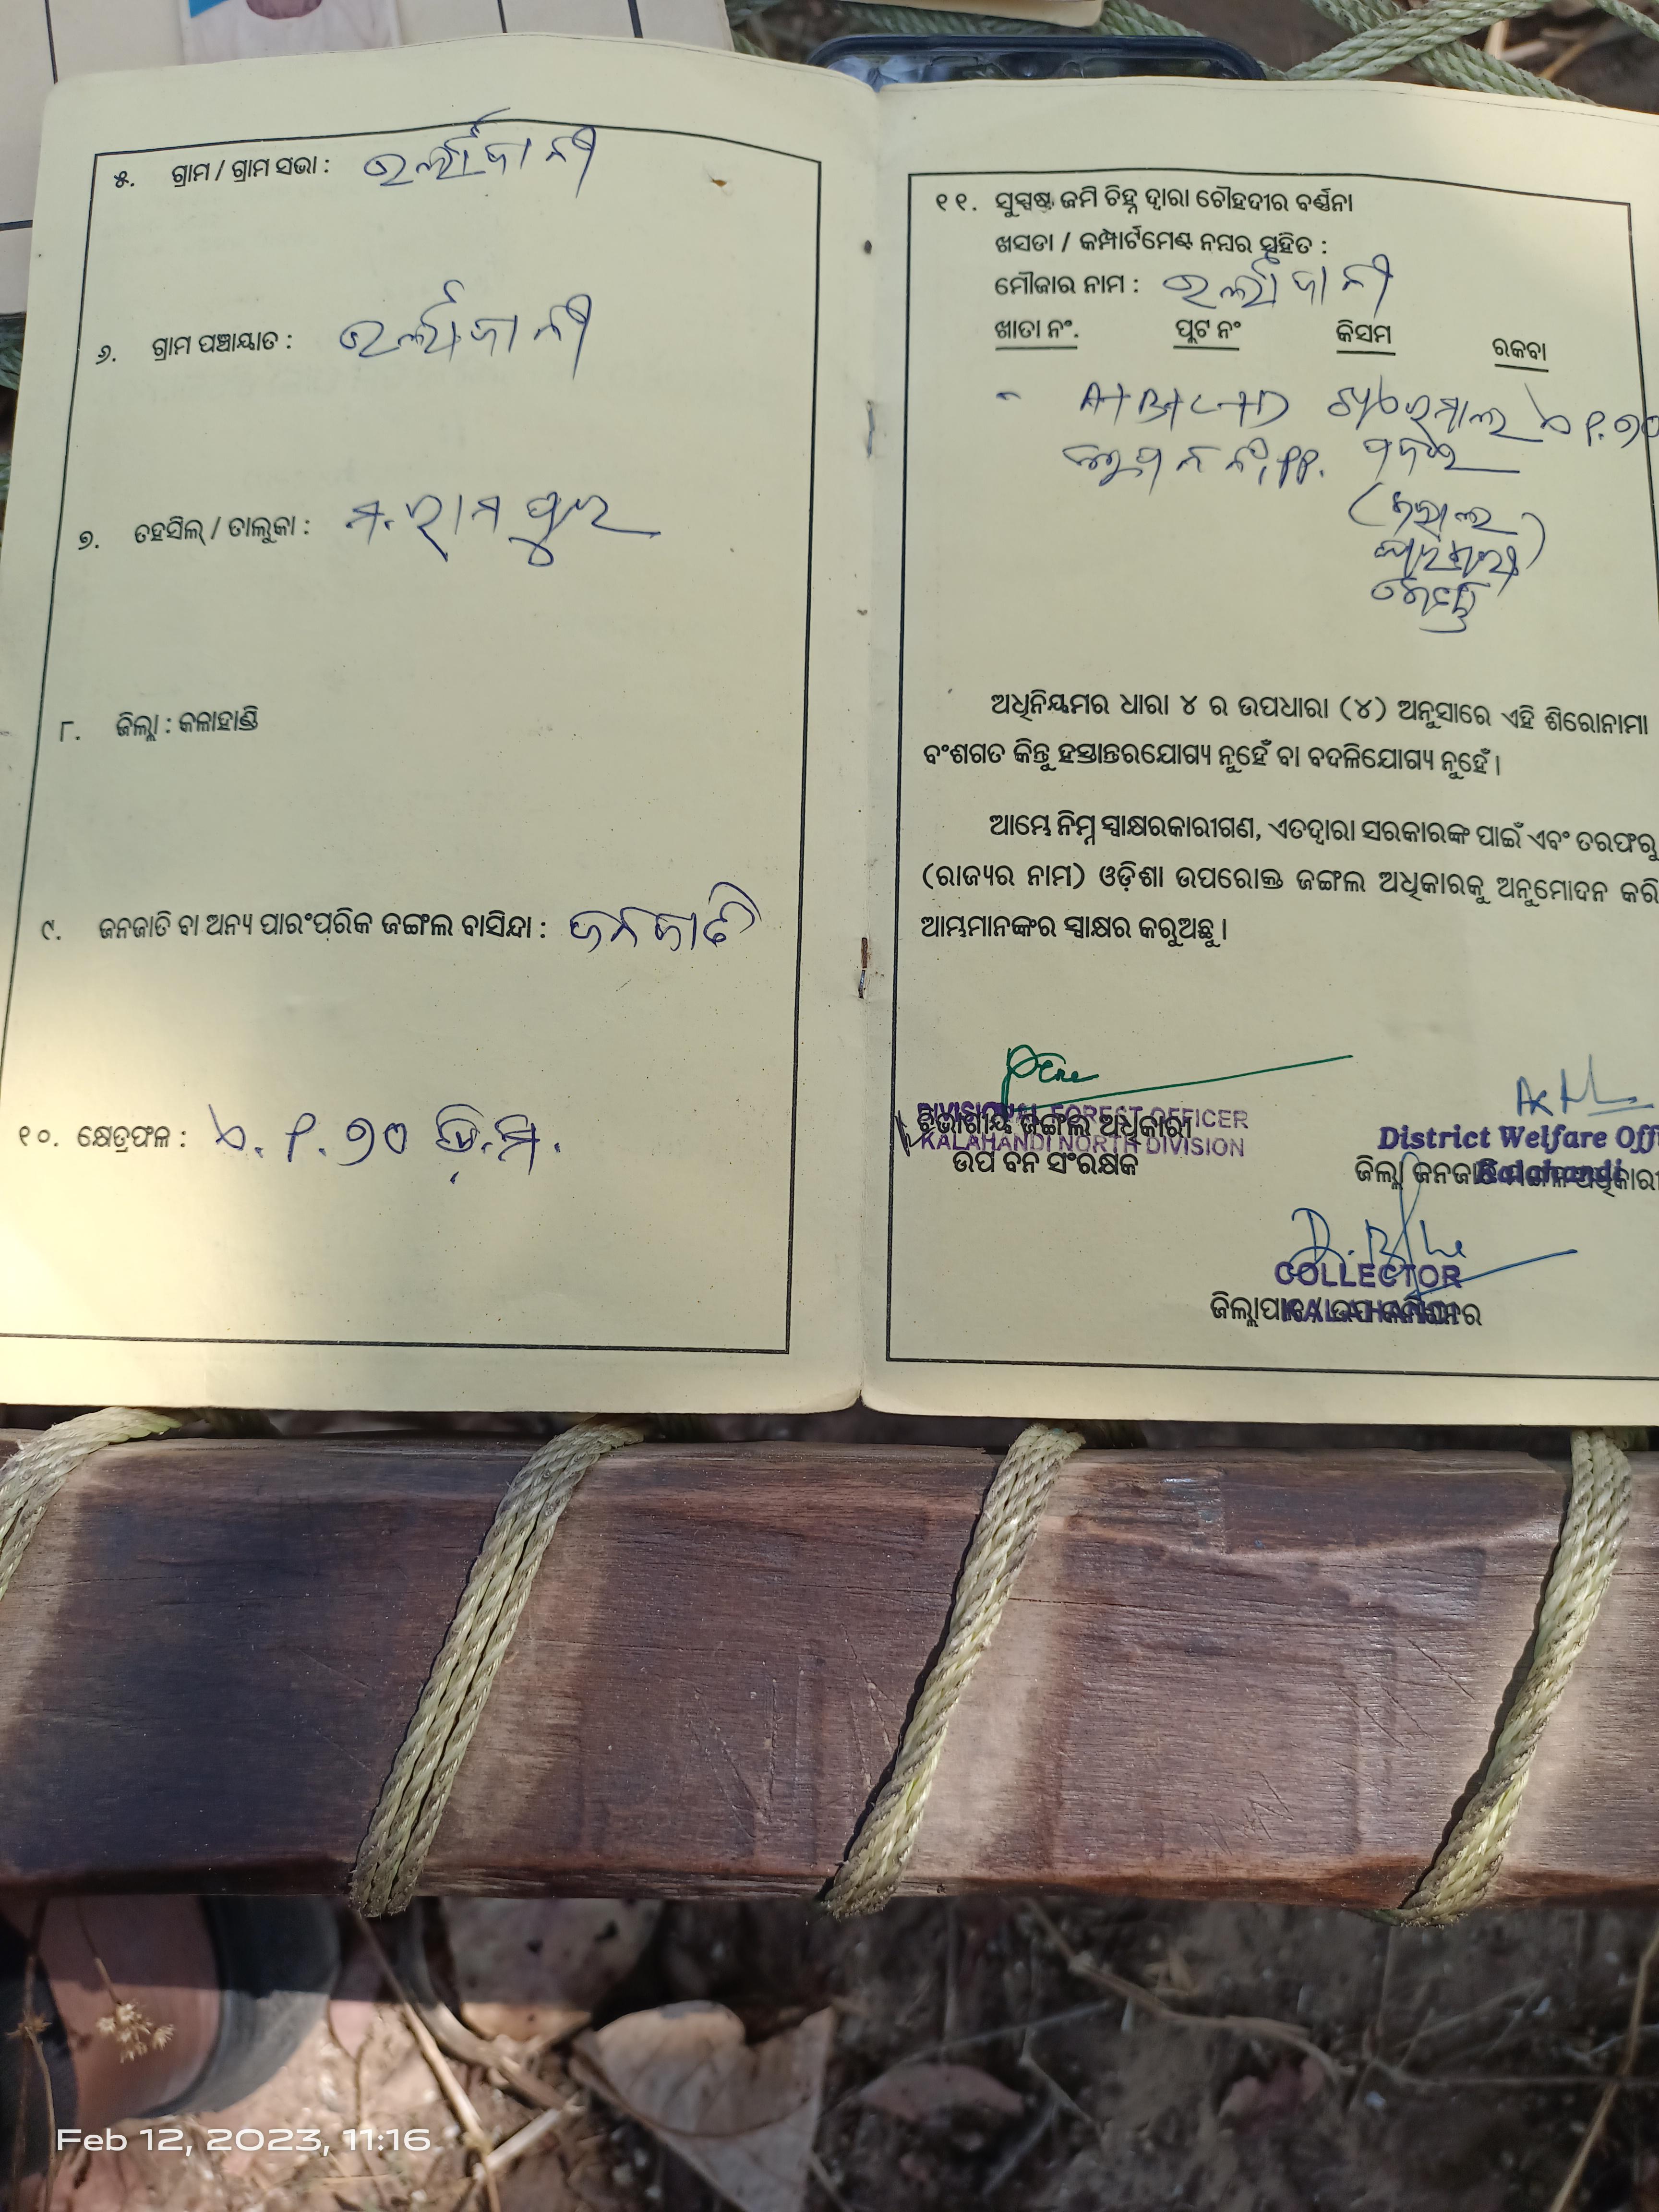 ୫. ଗ୍ରାମ / ଗ୍ରାମ ସଭା :
୬. ଗ୍ରାମ ପଞ୍ଚାୟାତ :
୭. ତହସିଲ୍ / ତାଲୁକା : ମ. ରାମପୁର
୮. ଜିଲ୍ଲା : କଳାହାଣ୍ଡି
୯. ଜନଜାତି ବା ଅନ୍ୟ ପାରଂପରିକ ଜଙ୍ଗଲ ବାସିନ୍ଦା : ଜନଜାତି
୧୦. କ୍ଷେତ୍ରଫଳ : ୦.୮.୭୦ ଡି.ମି.
୧୧. ସୁସ୍ପଷ୍ଟ ଜମି ଚିହ୍ନ ଦ୍ୱାରା ଚୌହଦୀର ବର୍ଣ୍ଣନା
ଖସଡା / କମ୍ପାର୍ଟମେଣ୍ଟ ନମ୍ବର ସହିତ :
ମୌଜାର ନାମ :
ଖାତା ନଂ. ପ୍ଲଟ ନଂ କିସମ ରକବା
A+B+C+D
ଅଧିନିୟମର ଧାରା ୪ ର ଉପଧାରା (୪) ଅନୁସାରେ ଏହି ଶିରୋନାମା
ବଂଶଗତ କିନ୍ତୁ ହସ୍ତାନ୍ତରଯୋଗ୍ୟ ନୁହେଁ ବା ବଦଳିଯୋଗ୍ୟ ନୁହେଁ ।
ଆମ୍ଭେ ନିମ୍ନ ସ୍ୱାକ୍ଷରକାରୀଗଣ, ଏତଦ୍ଦ୍ୱାରା ସରକାରଙ୍କ ପାଇଁ ଏବଂ ତରଫରୁ
(ରାଜ୍ୟର ନାମ) ଓଡ଼ିଶା ଉପରୋକ୍ତ ଜଙ୍ଗଲ ଅଧିକାରକୁ ଅନୁମୋଦନ କରି
ଆମ୍ଭମାନଙ୍କର ସ୍ୱାକ୍ଷର କରୁଅଛୁ ।
DIVISIONAL FOREST OFFICER
ବିଭାଗୀୟ ଜଙ୍ଗଲ ଅଧିକାରୀ
KALAHANDI NORTH DIVISION
ଉପ ବନ ସଂରକ୍ଷକ
District Welfare Off
ଜିଲ୍ଲା ଜନଜାତି ମଙ୍ଗଳ ଅଧିକାରୀ
Kalahandi
COLLECTOR
KALAHANDI
ଜିଲ୍ଲାପାଳ / ଉପ କମିଶନର
Feb 12, 2023, 11:16